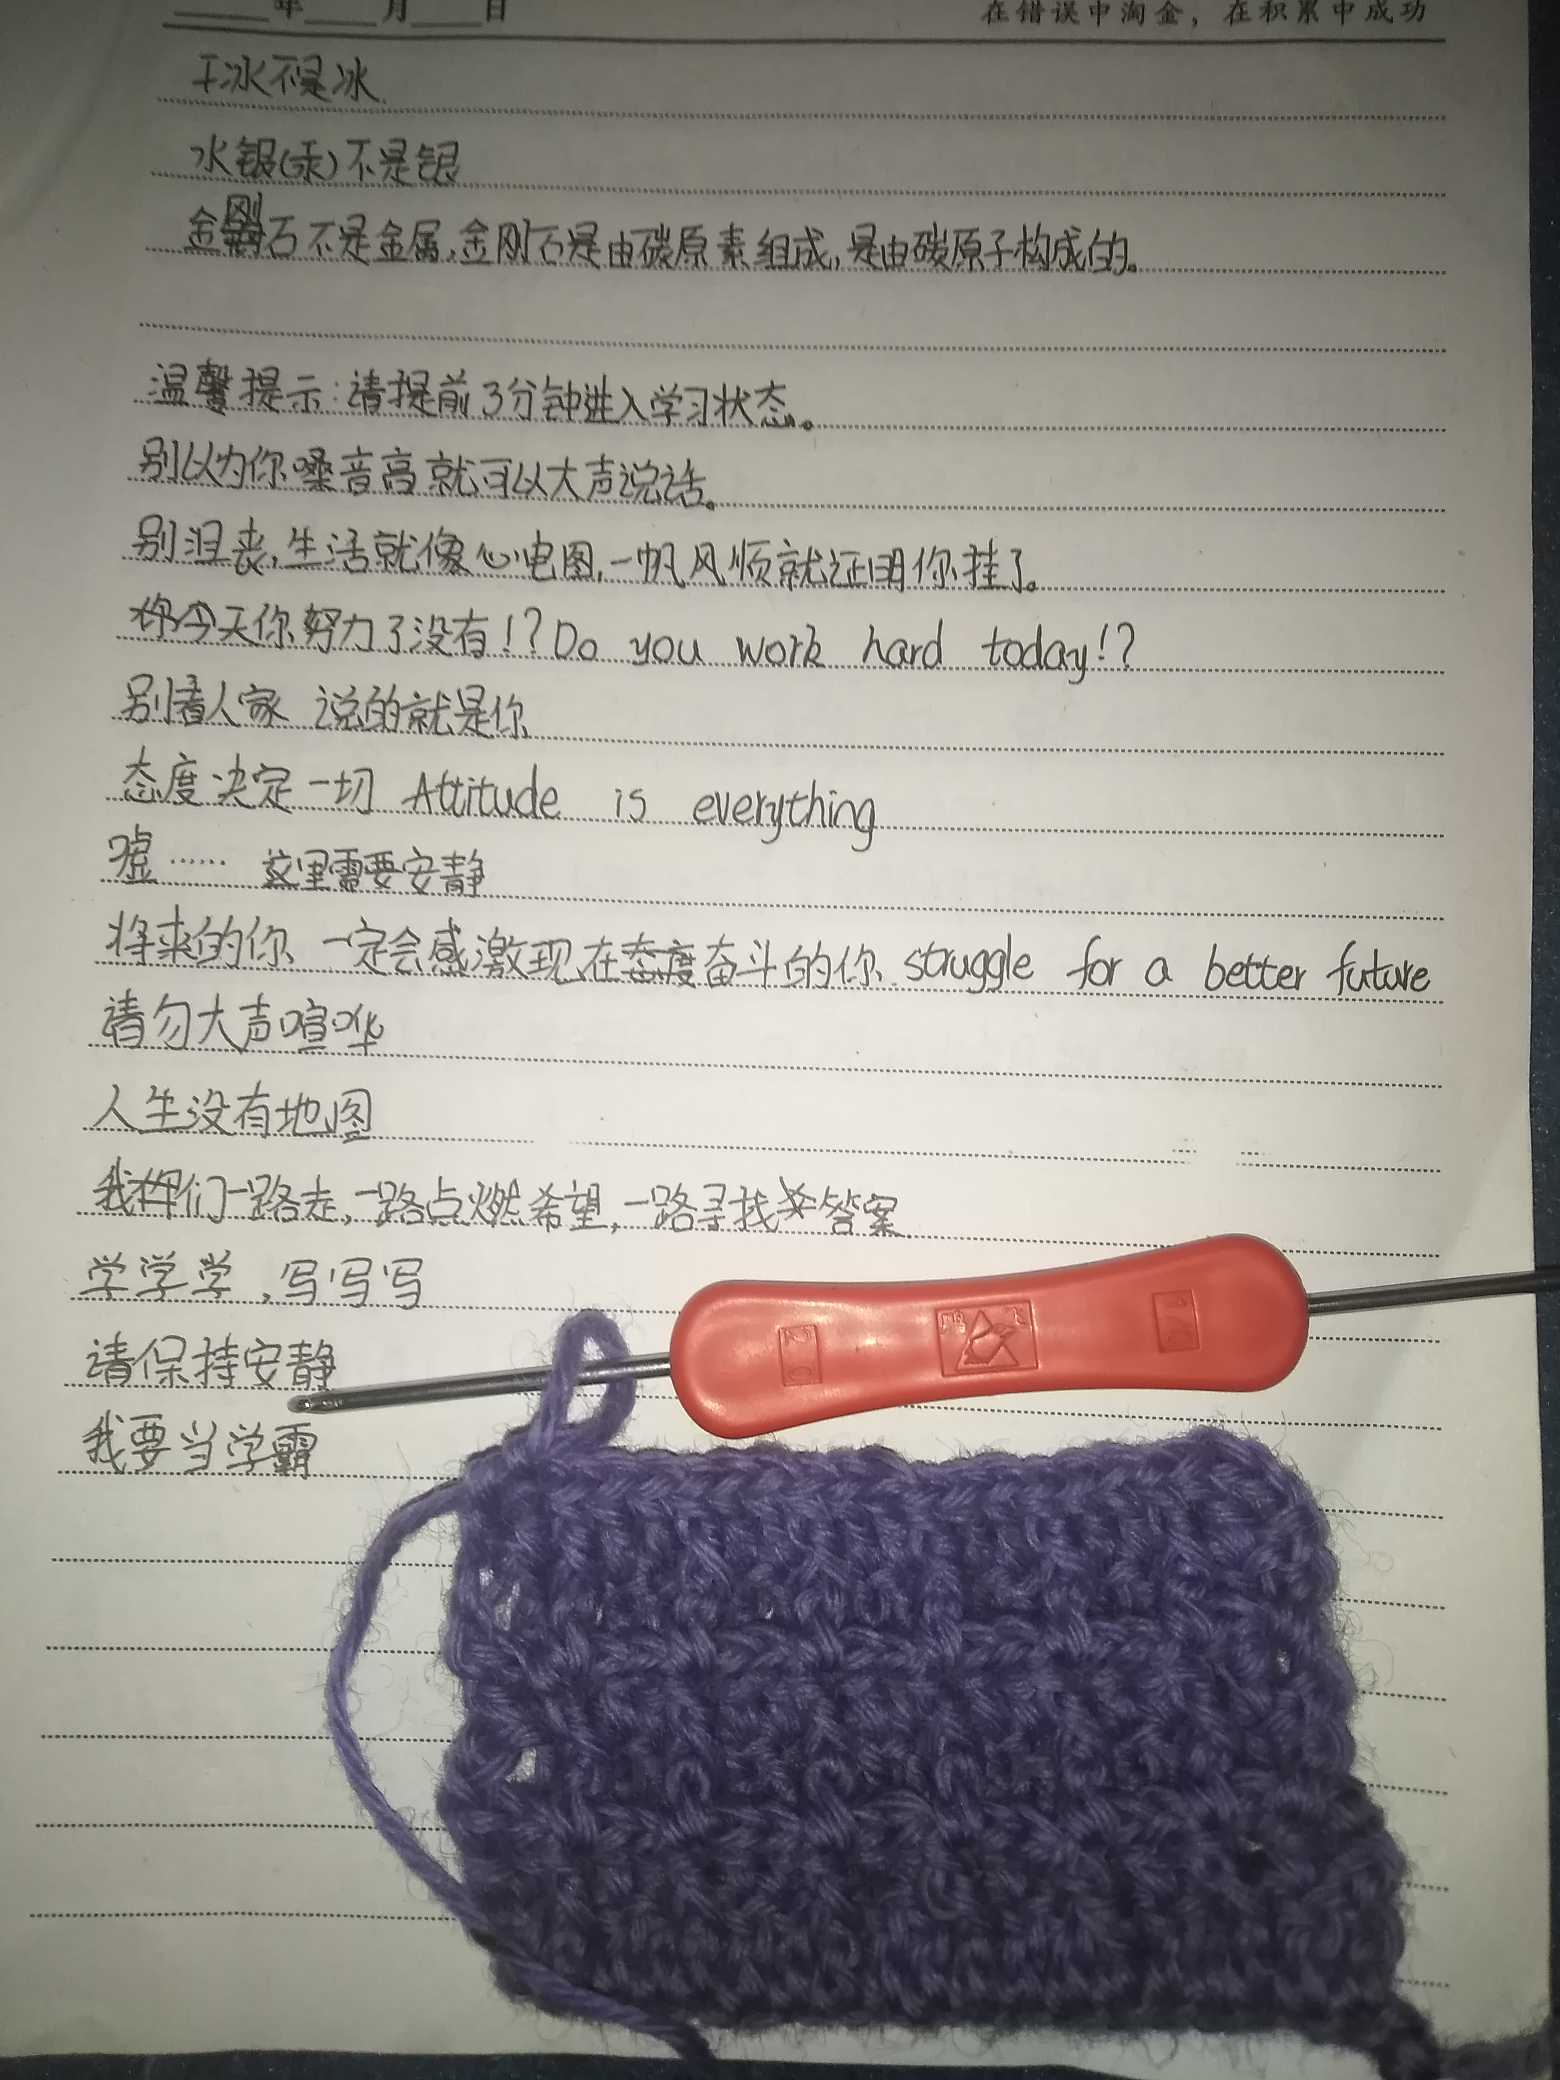 年 月 日 在错误中淘金，在积累中成功
干冰不是冰
水银(汞)不是银
金刚石不是金属,金刚石是由碳原素组成,是由碳原子构成的。
温馨提示:请提前3分钟进入学习状态。
别以为你嗓音高就可以大声说话。
别沮丧,生活就像心电图,一帆风顺就证明你挂了。
今天你努力了没有!?Do you work hard today!?
别看人家 说的就是你
态度决定一切 Attitude is everything
嘘…… 这里需要安静
将来的你 一定会感激现在奋斗的你 struggle for a better future
请勿大声喧哗
人生没有地图
我们一路走,一路点燃希望,一路寻找答案
学学学,写写写
请保持安静
我要当学霸